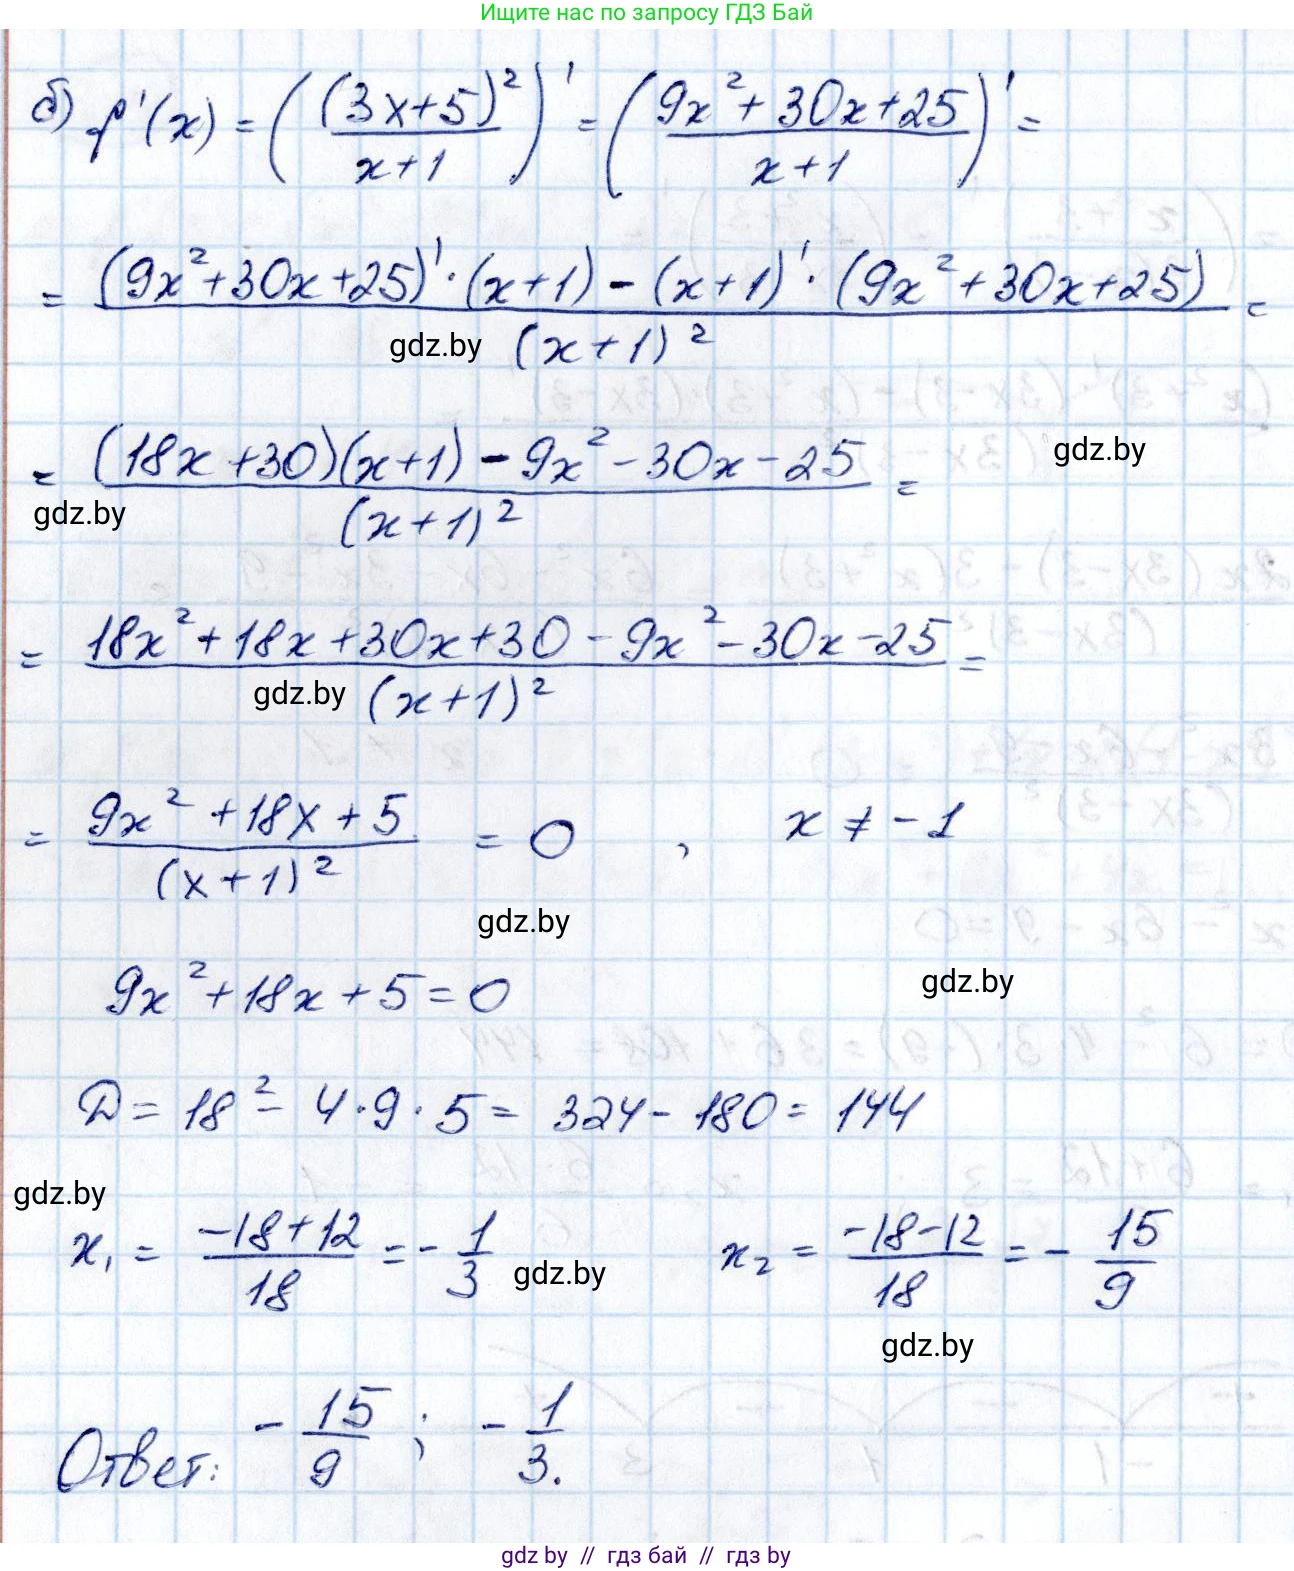 Ищите нас по запросу ГДЗ Бай
б) f'(x) = ((3x+5)²/(x+1))' = ((9x²+30x+25)/(x+1))' =
= ((9x²+30x+25)'·(x+1) - (x+1)'·(9x²+30x+25))/(x+1)² =
gdz.by
= ((18x+30)(x+1) - 9x² - 30x - 25)/(x+1)² =
gdz.by
gdz.by
= (18x²+18x+30x+30-9x²-30x-25)/(x+1)² =
gdz.by
= (9x²+18x+5)/(x+1)² = 0 , x ≠ -1
gdz.by
9x²+18x+5=0
gdz.by
D = 18² - 4·9·5 = 324 - 180 = 144
gdz.by
x₁ = (-18+12)/18 = -1/3 x₂ = (-18-12)/18 = -15/9
gdz.by
gdz.by
Ответ: -15/9 ; -1/3.
gdz by // гдз бай // гдз by